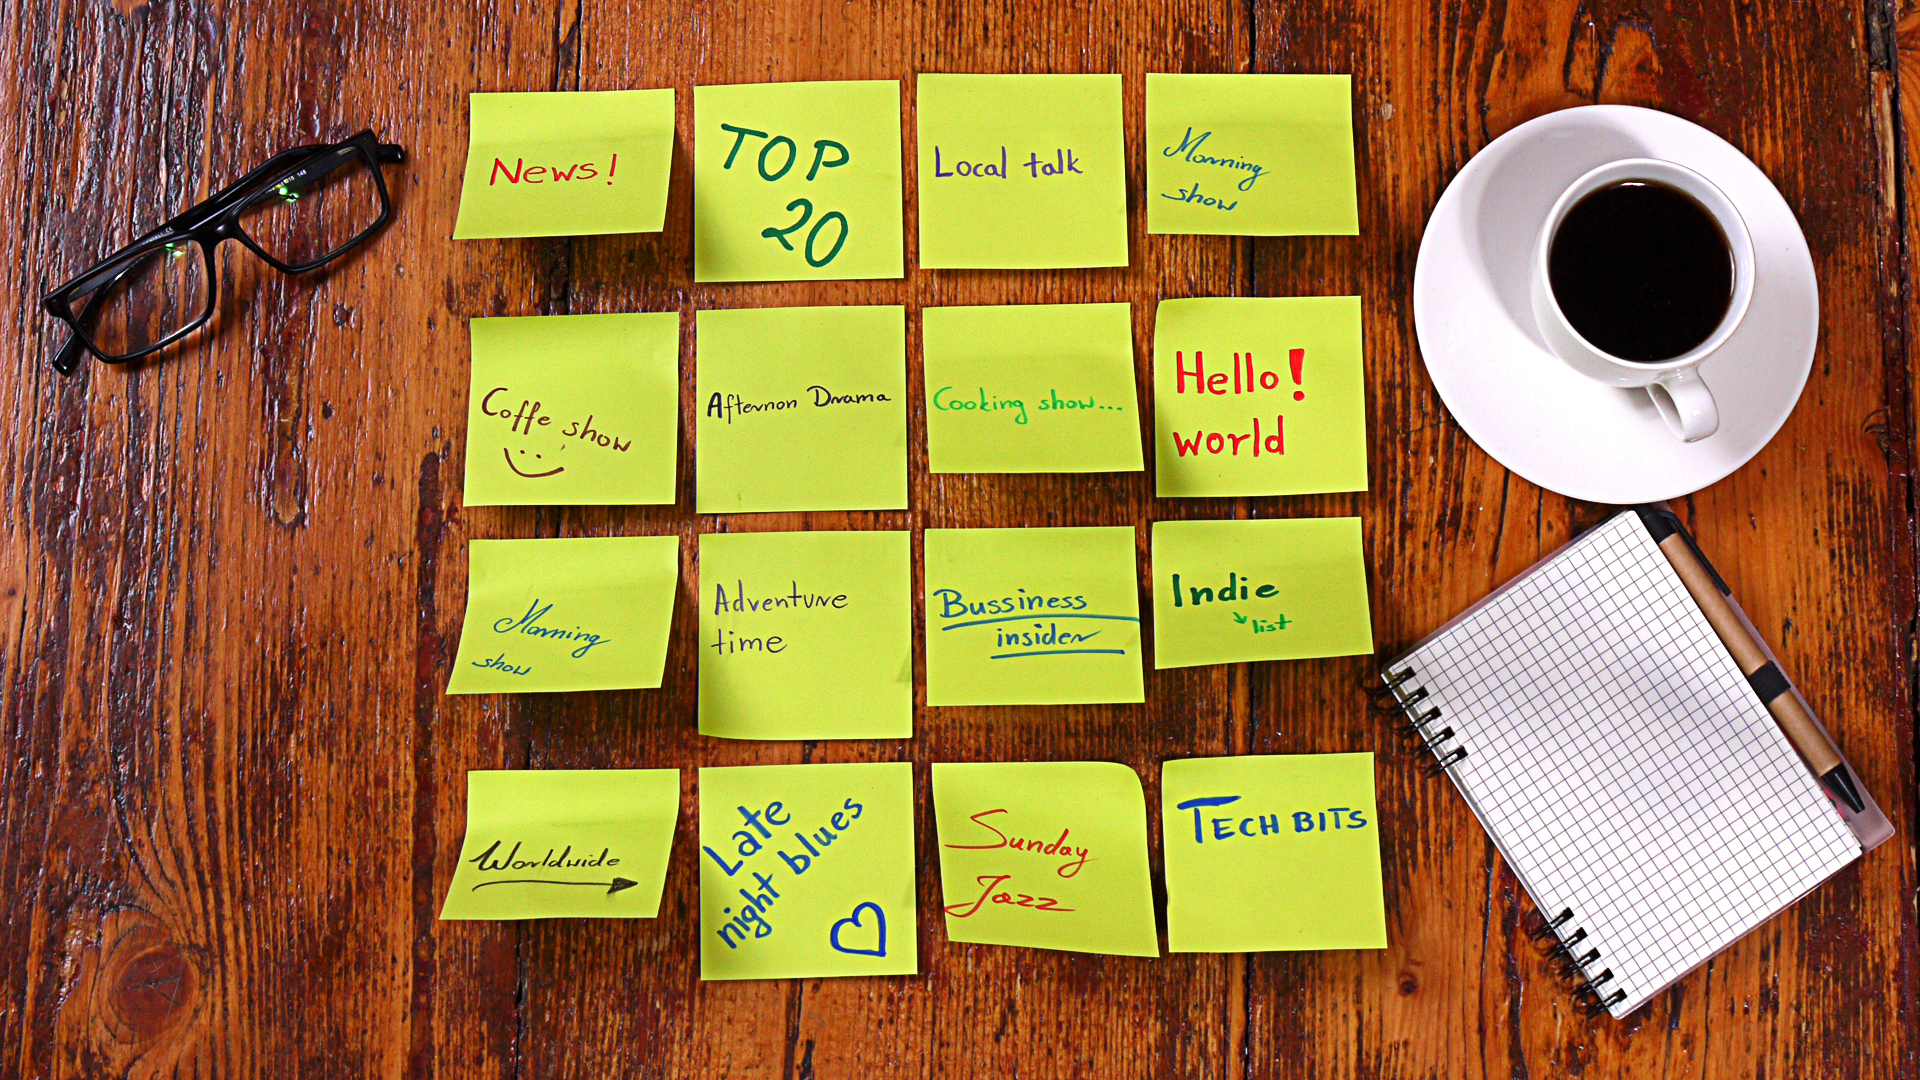 News!
TOP
20
Local talk
Morning
show
Coffe show
Afternon Drama
Cooking show...
Hello!
world
Morning
show
Adventure
time
Bussiness
insider
Indie
list
Worldwide
Late
night blues
Sunday
Jazz
TECH BITS